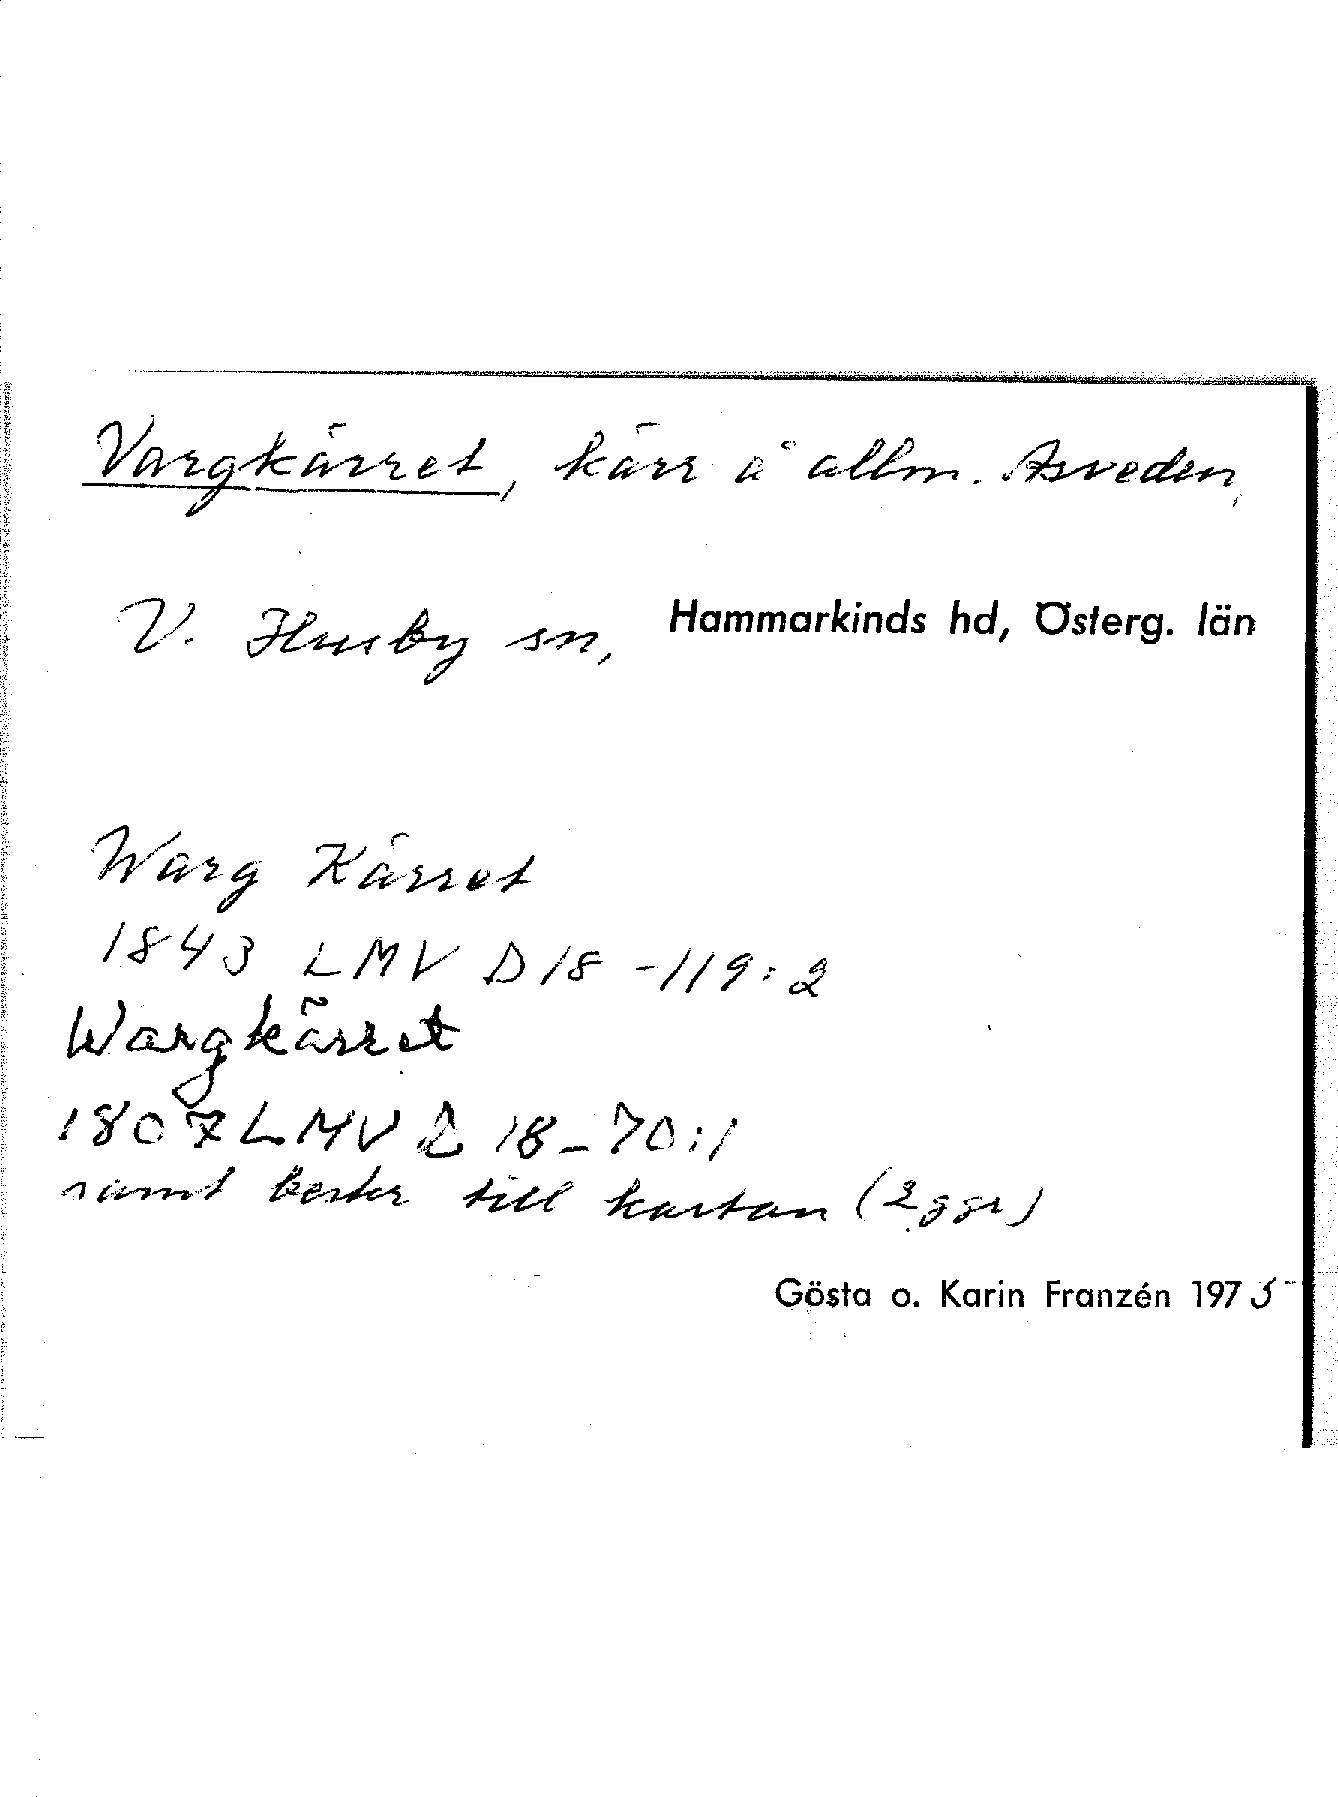 Vargkärret, kärr å allm. Asveden,
V. Husby sn, Hammarkinds hd, Österg. län
Warg Kärret
1843 LMV D18-119:2
Wargkärret
1807 LMV D 18-70:1
samt beskr till kartan (2 ggr)
Gösta o. Karin Franzén 1975